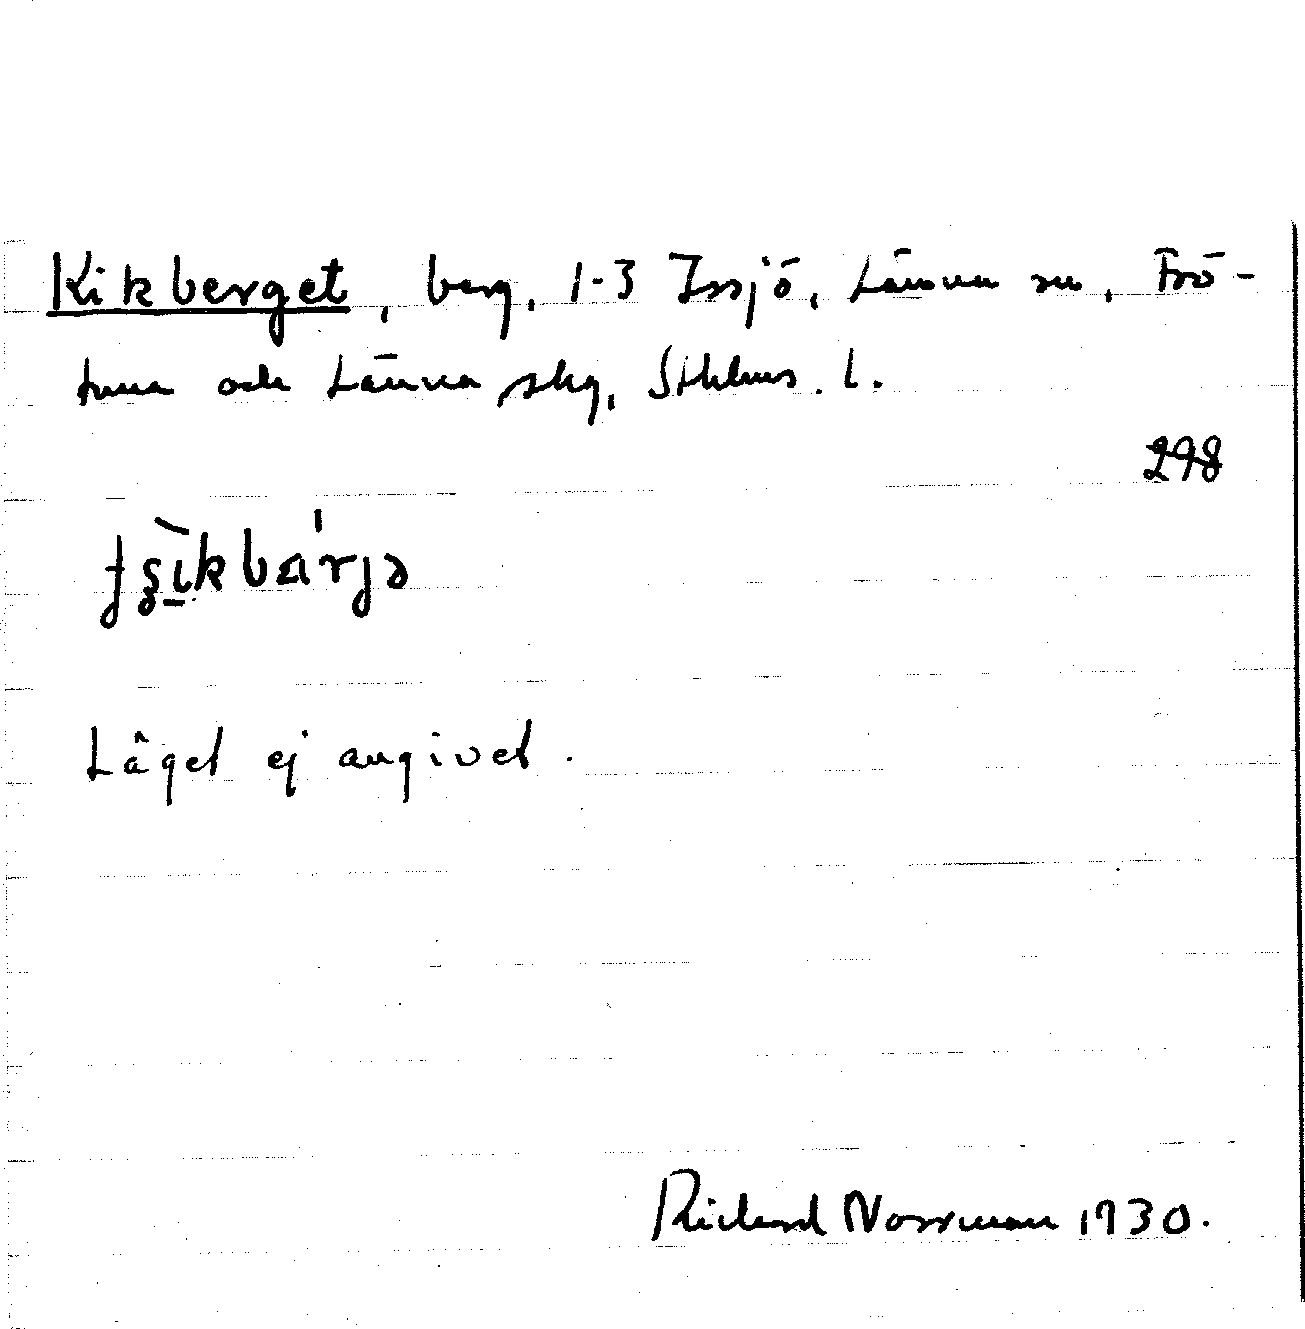 Kikberget, berg, 1-3 Issjö, Länna sn, Frö-
tuna och Länna skg, Sthlms. l.
298
Läget ej angivet.
Richard Norrman 1930.